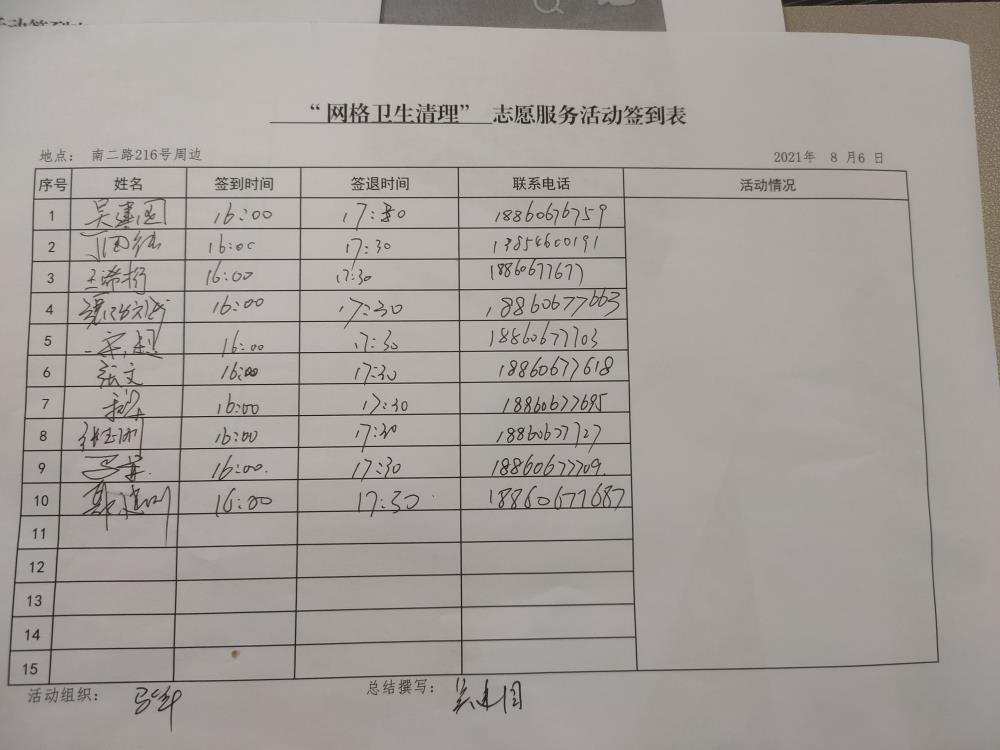 “网格卫生清理” 志愿服务活动签到表
地点： 南二路216号周边 2021年 8 月6 日
序号 姓名 签到时间 签退时间 联系电话 活动情况
1 吴建国 16:00 17:30 18860676759
2 16:00 17:30 13854600191
3 16:00 17:30 18860677677
4 16:00 17:30 18860677663
5 16:00 17:30 18860677703
6 张文 16:00 17:30 18860677618
7 16:00 17:30 18860677695
8 16:00 17:30 18860677727
9 16:00. 17:30 18860677709.
10 16:00 17:30 18860677687
11
12
13
14
15
活动组织： 总结撰写： 吴建国